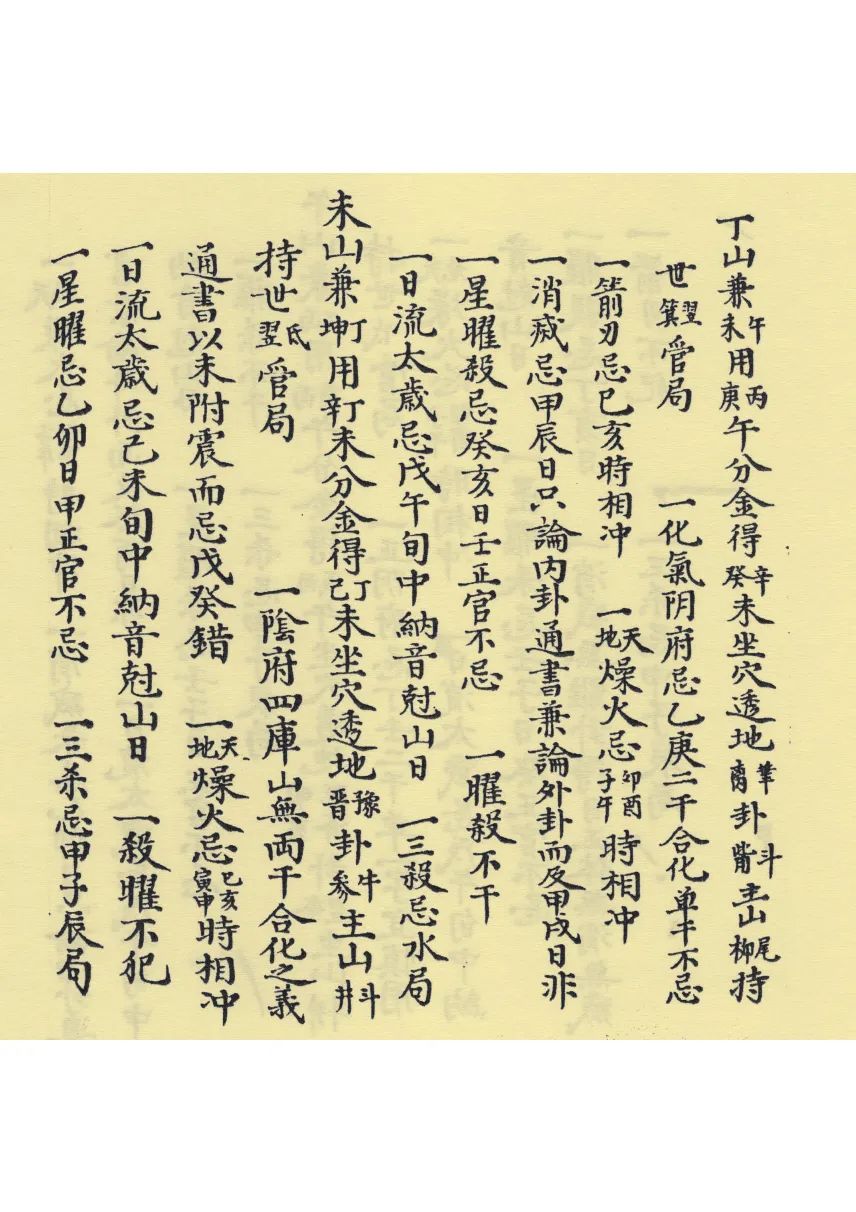 丁山兼午未用丙庚午分金得辛癸未坐穴透地萃离卦斗觜主山尾柳持
世翌箕管局　一化氣阴府忌乙庚二干合化单干不忌
一箭刃忌巳亥時相冲　一天地燥火忌卯酉子午時相冲
一消滅忌甲辰日只論内卦通書兼論外卦而及甲戌日非
一星曜殺忌癸亥日壬正官不忌　一曜殺不干
一日流太歲忌戊午旬中納音尅山日　一三殺忌水局
未山兼丁坤用丁辛未分金得丁己未坐穴透地豫晋卦牛参主山斗井
持世氐翌管局　一陰府四庫山無両干合化之義
通書以未附震而忌戊癸錯　一天地燥火忌巳亥寅申時相冲
一日流太歲忌己未旬中納音尅山日　一殺曜不犯
一星曜忌乙卯日甲正官不忌　一三杀忌甲子辰局